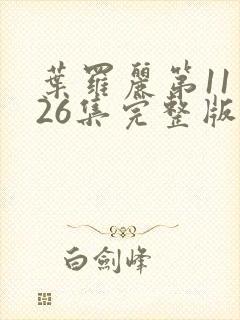 葉羅麗第11
26集完整版
白劍峰